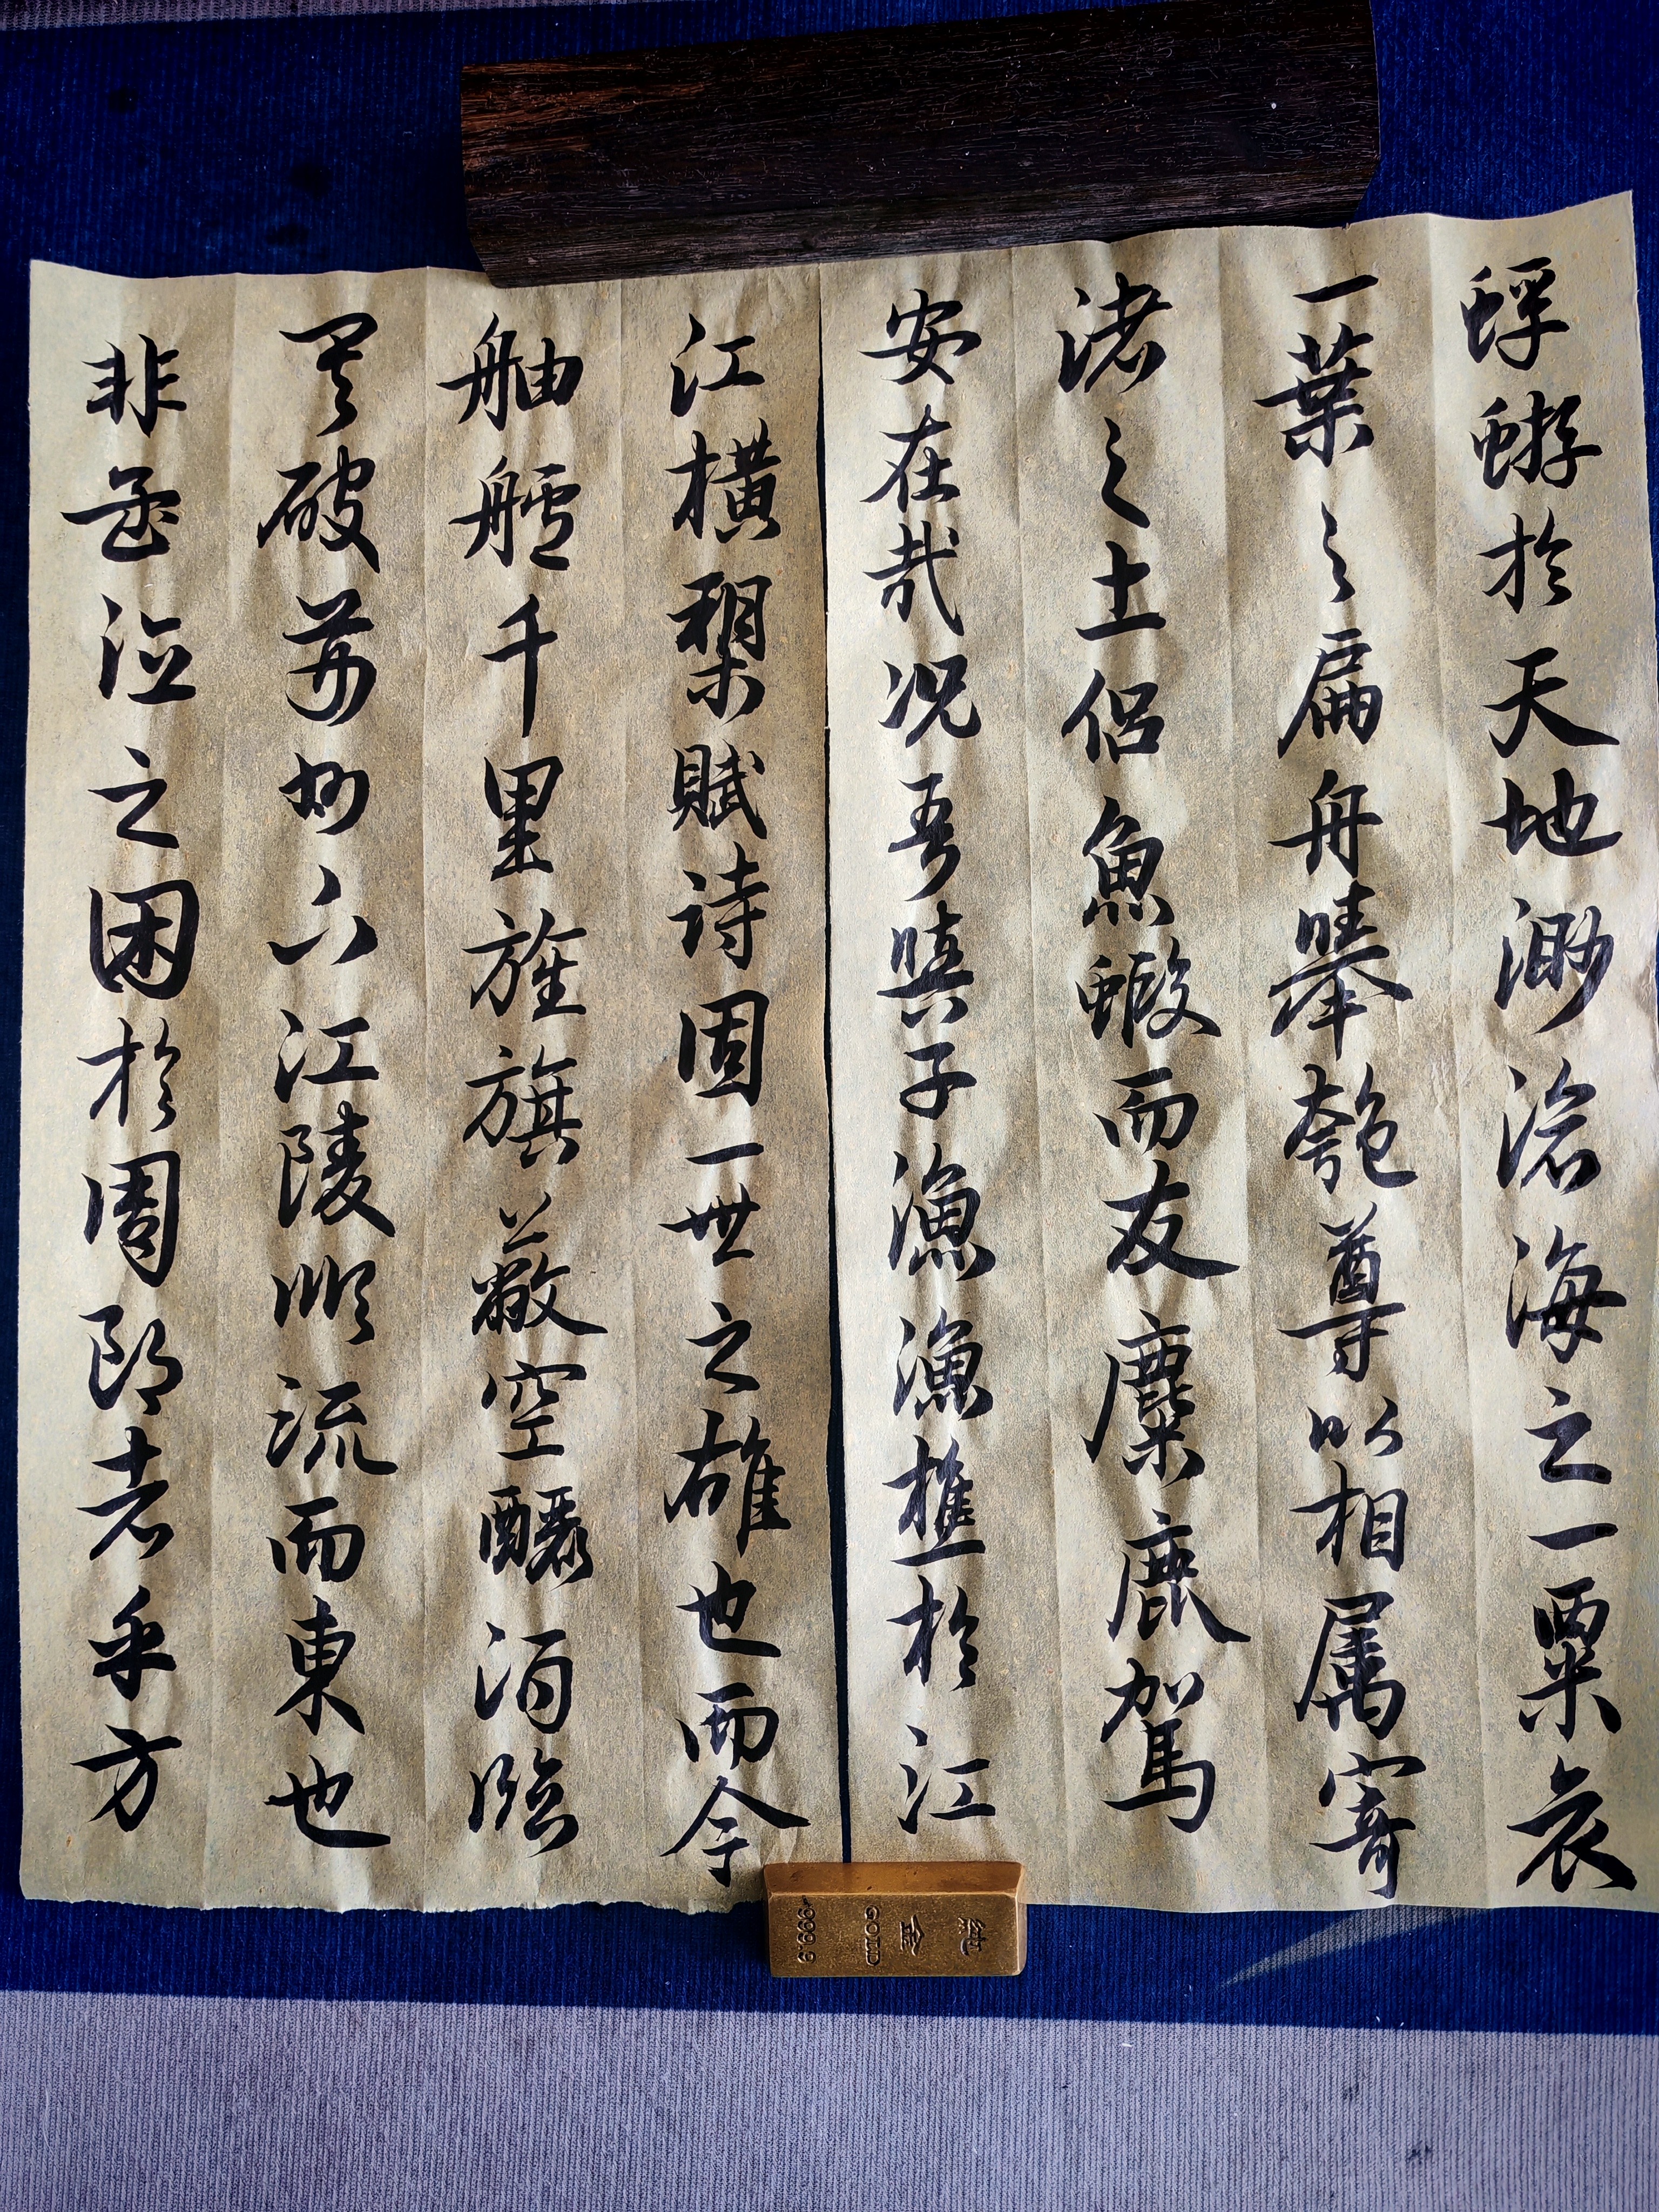 蜉蝣於天地渺滄海之一粟哀
一葉之扁舟舉匏尊以相屬寄
渚之土侶魚蝦而友麋鹿駕
安在哉况吾與子漁漁樵於江
江橫槊賦詩固一世之雄也而今
舳艫千里旌旗蔽空釃酒臨
其破荊州下江陵順流而東也
非孟德之困於周郎者乎方
純金
GOLD
999.9